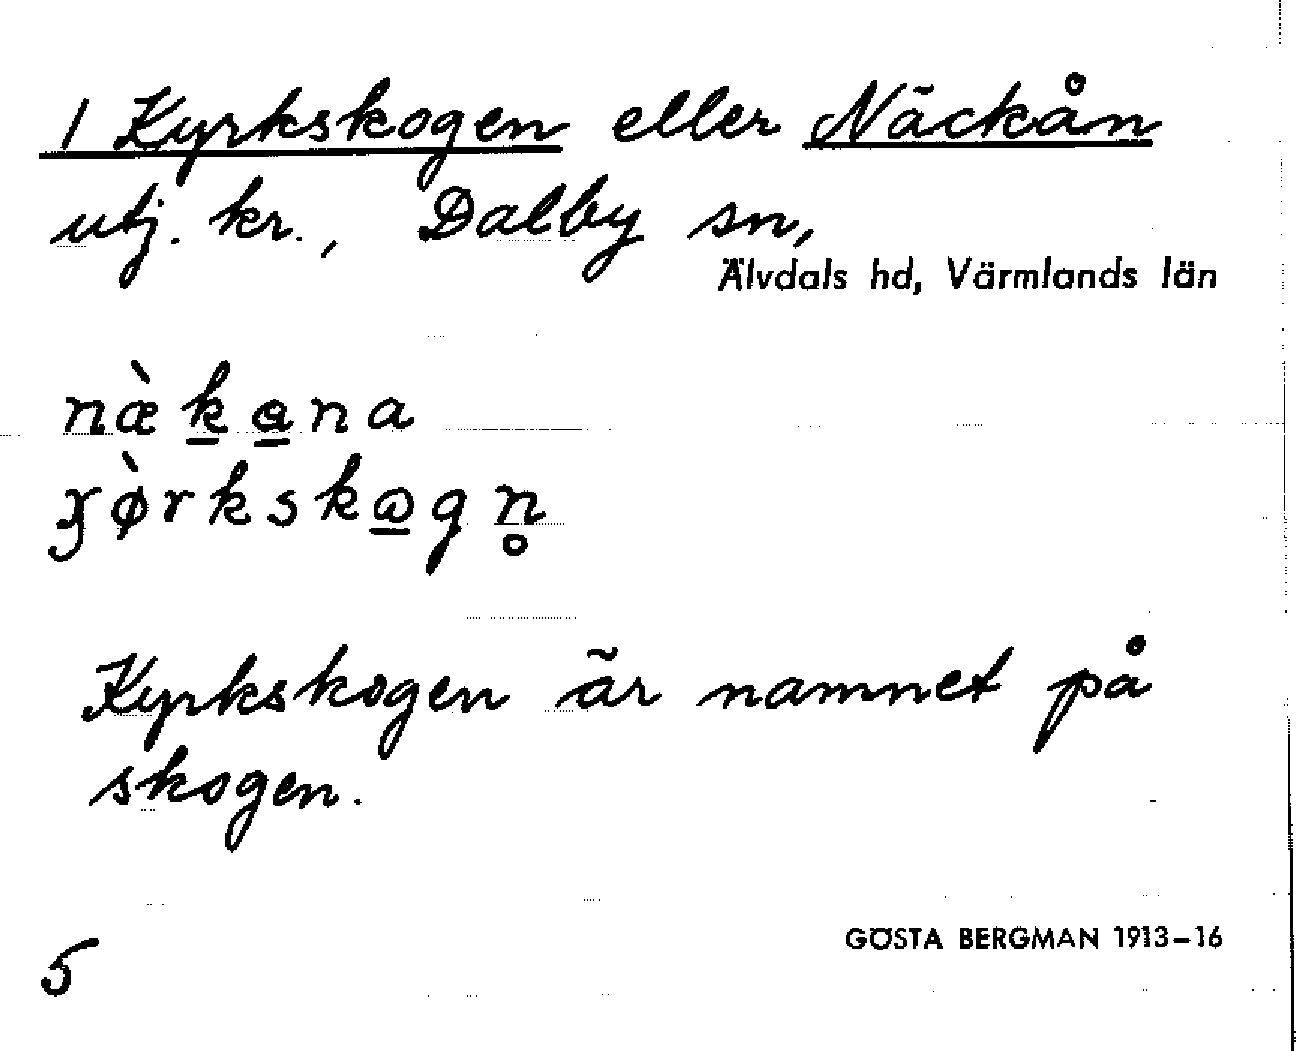 1 Kyrkskogen eller Näckån
utj. kr., Dalby sn,
Älvdals hd, Värmlands län
næ̀k̲a̲na
ɣø̀rkskω̲gn̥
Kyrkskogen är namnet på
skogen.
5
GÖSTA BERGMAN 1913-16